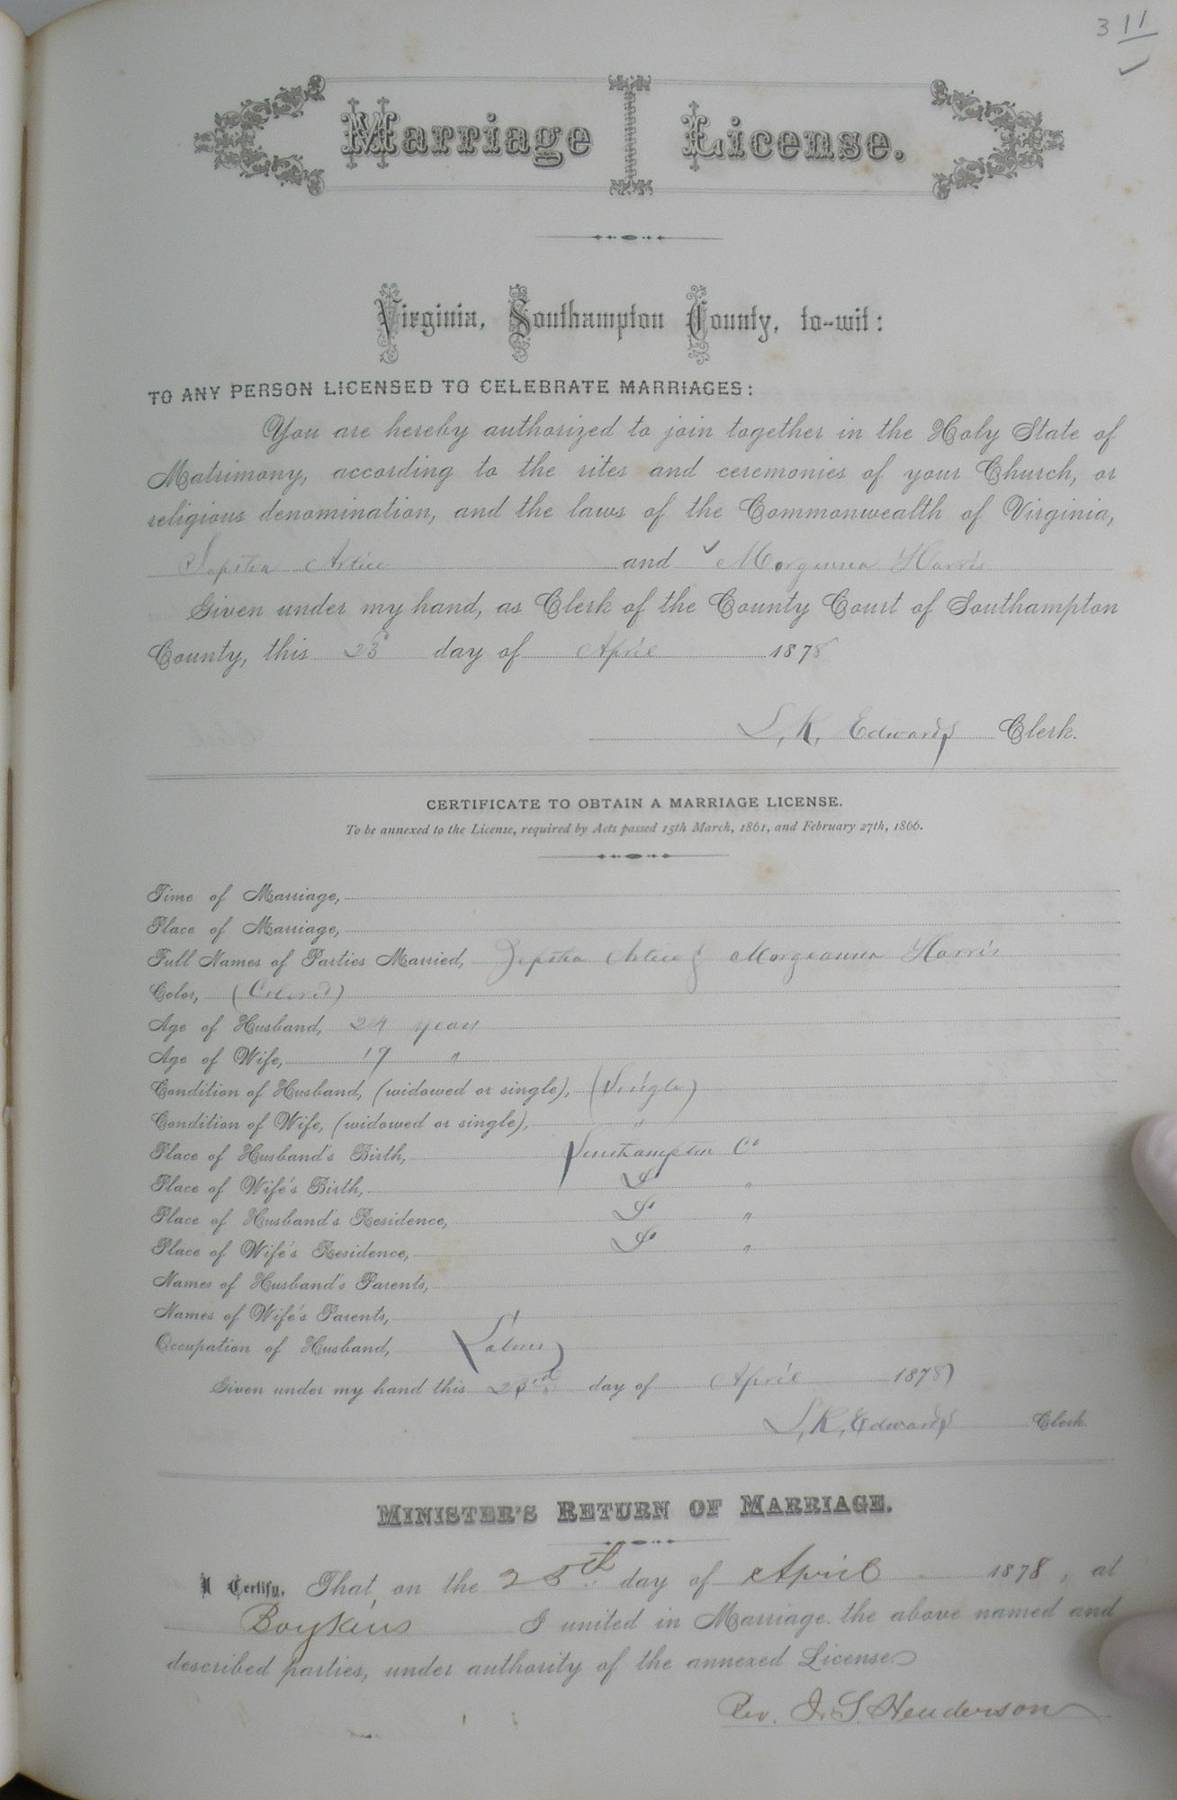 3 11
Marriage License.
Virginia, Southampton County, to-wit:
TO ANY PERSON LICENSED TO CELEBRATE MARRIAGES:
You are hereby authorized to join together in the Holy State of
Matrimony, according to the rites and ceremonies of your Church, or
religious denomination, and the laws of the Commonwealth of Virginia,
Artice and ✓ Morgianna Harris
Given under my hand, as Clerk of the County Court of Southampton
County, this 23 day of April 1878
L. R. Edwards Clerk.
CERTIFICATE TO OBTAIN A MARRIAGE LICENSE.
To be annexed to the License, required by Acts passed 15th March, 1861, and February 27th, 1866.
Time of Marriage,
Place of Marriage,
Full Names of Parties Married, Artice & Morgianna Harris
Color, (Colored)
Age of Husband, 24 years
Age of Wife, 17 "
Condition of Husband, (widowed or single), (Single)
Condition of Wife, (widowed or single), "
Place of Husband's Birth, Southampton Co
Place of Wife's Birth, Do "
Place of Husband's Residence, Do "
Place of Wife's Residence, Do "
Names of Husband's Parents,
Names of Wife's Parents,
Occupation of Husband,
Given under my hand this 23rd day of April 1878
L. R. Edwards Clerk
MINISTER'S RETURN OF MARRIAGE.
I Certify, That on the 25th day of April 1878, at
Boykins I united in Marriage the above named and
described parties, under authority of the annexed License
Rev. J. S. Henderson